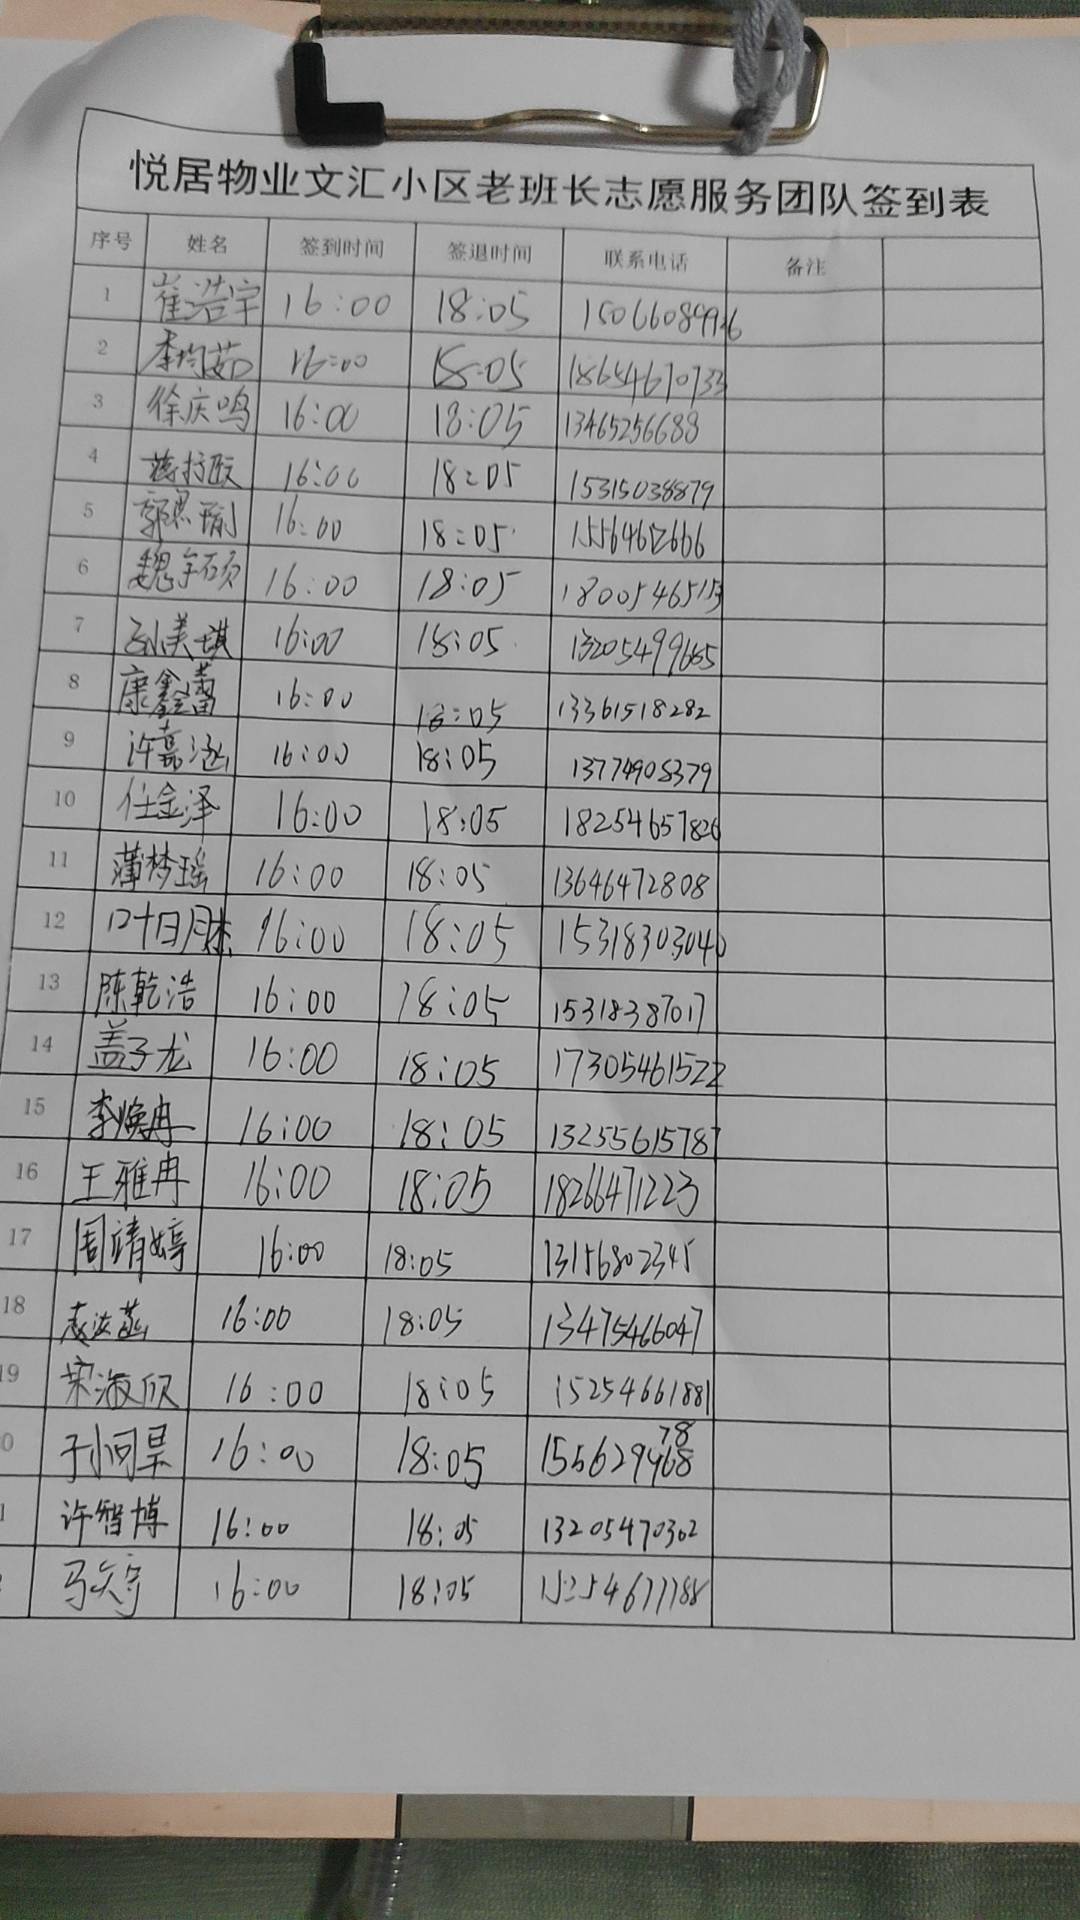 悦居物业文汇小区老班长志愿服务团队签到表
序号 姓名 签到时间 签退时间 联系电话 备注
1 崔浩宇 16:00 18:05
2 李均茹 16:00 18:05 18654670733
3 徐庆鸣 16:00 18:05 13465256688
4 16:00 18:05 15315038879
5 郭思瑜 16:00 18:05
6 魏宇硕 16:00 18:05 18005465153
7 孙美琪 16:00 18:05
8 康鑫蕾 16:00 18:05 13361518282
9 许嘉涵 16:00 18:05 13774908379
10 任金泽 16:00 18:05 18254657826
11 薄梦瑶 16:00 18:05 13646472808
12 叶日月 16:00 18:05 15318303040
13 陈乾浩 16:00 18:05 15318387017
14 盖子龙 16:00 18:05 17305461522
15 李焕冉 16:00 18:05 13255615787
16 王雅冉 16:00 18:05 18266471223
17 周靖婷 16:00 18:05 13156802345
18 16:00 18:05 13475466047
19 荣淑欣 16:00 18:05 15254661881
0 孙同昊 16:00 18:05
1 许智博 16:00 18:05 13205470302
16:00 18:05 15254677788